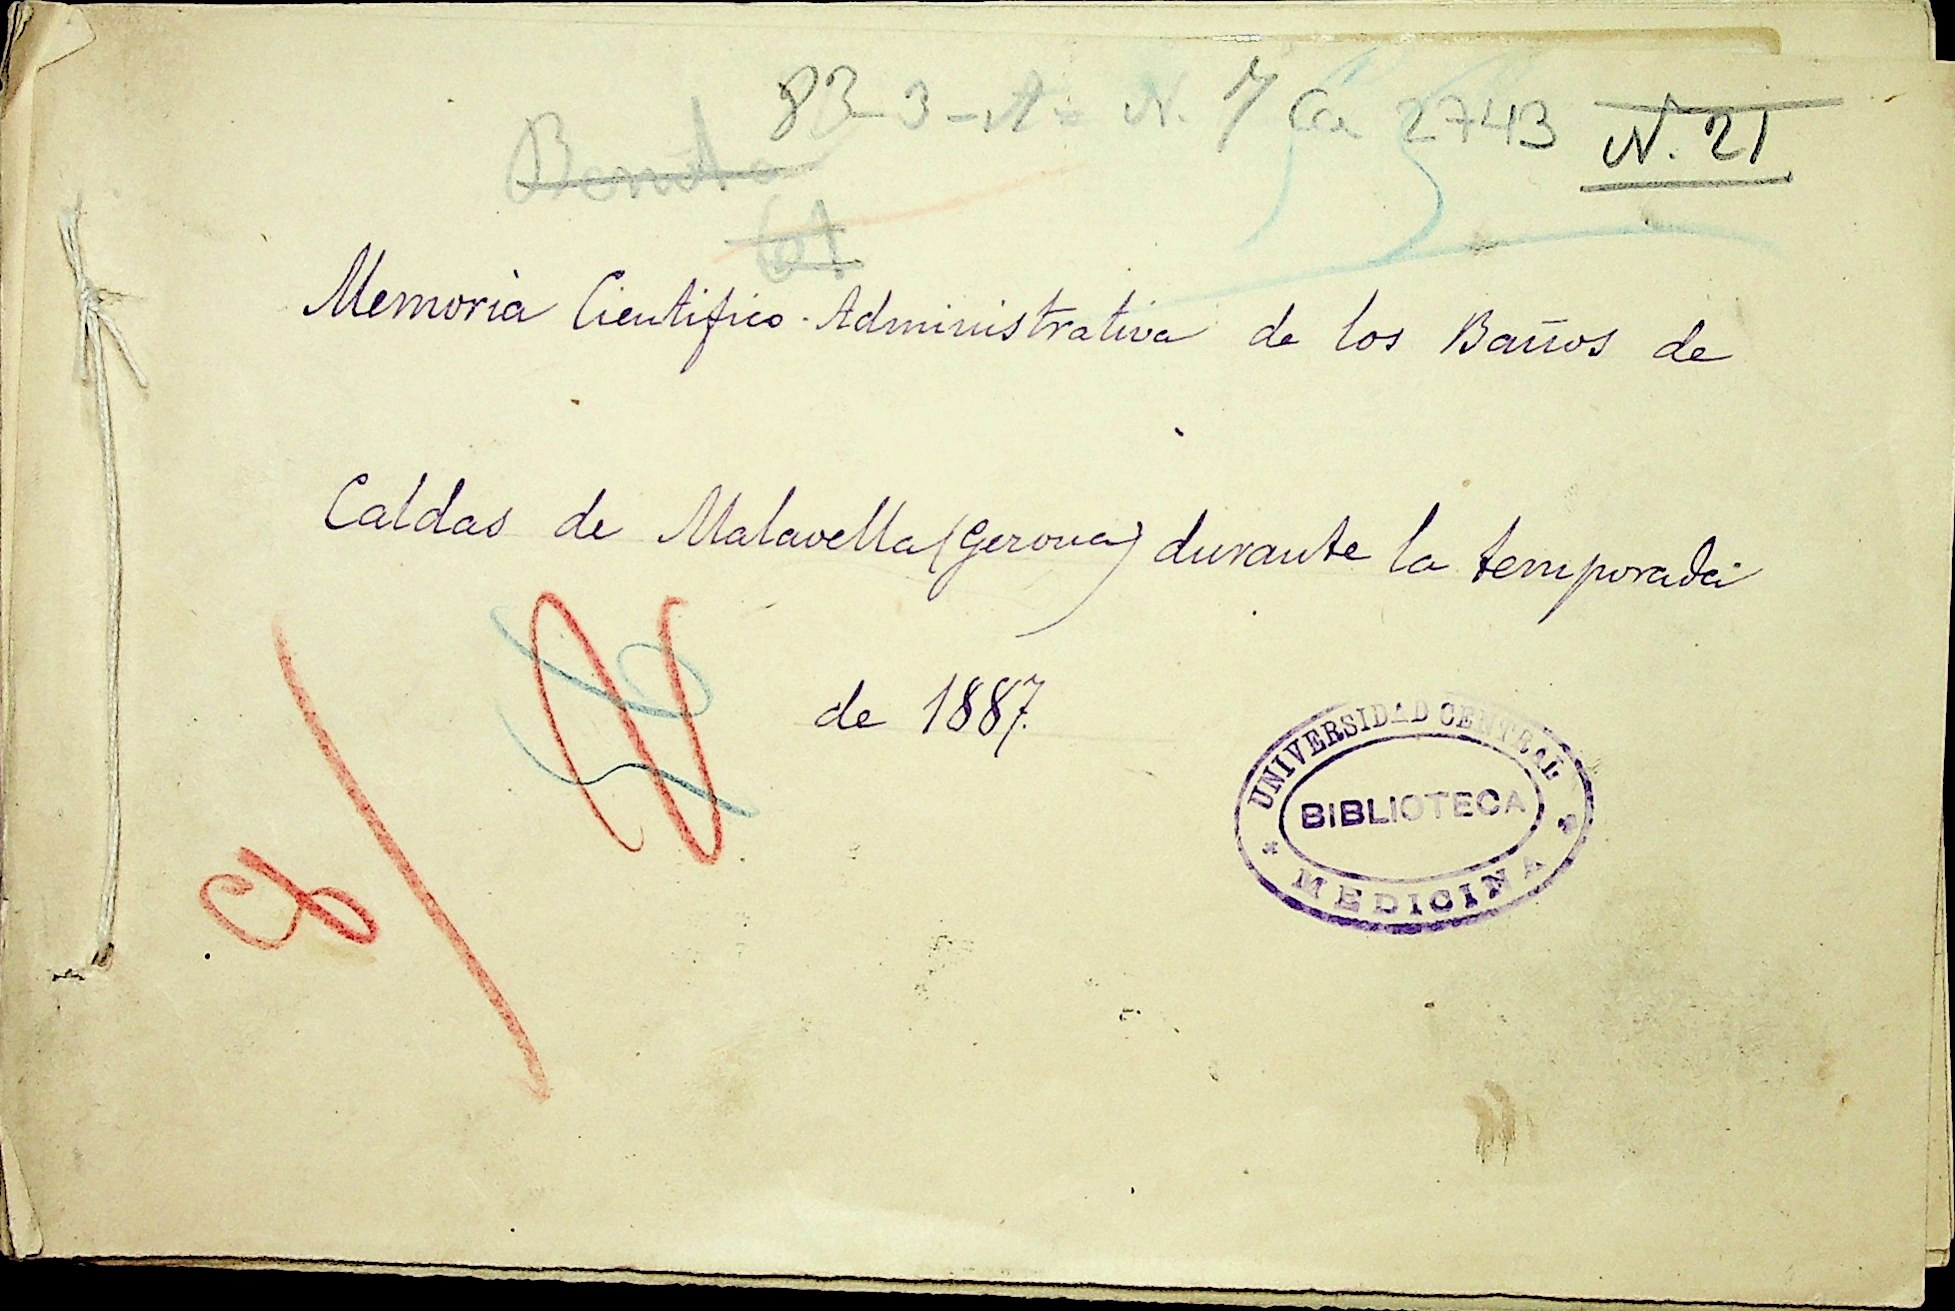 83-3-A= N. 7 Ca 2743 N. 21
61
Memoria Cientifico-Administrativa de los Baños de
Caldas de Malavella (Gerona) durante la temporada
de 1887.
UNIVERSIDAD CENTRAL
BIBLIOTECA
MEDICINA